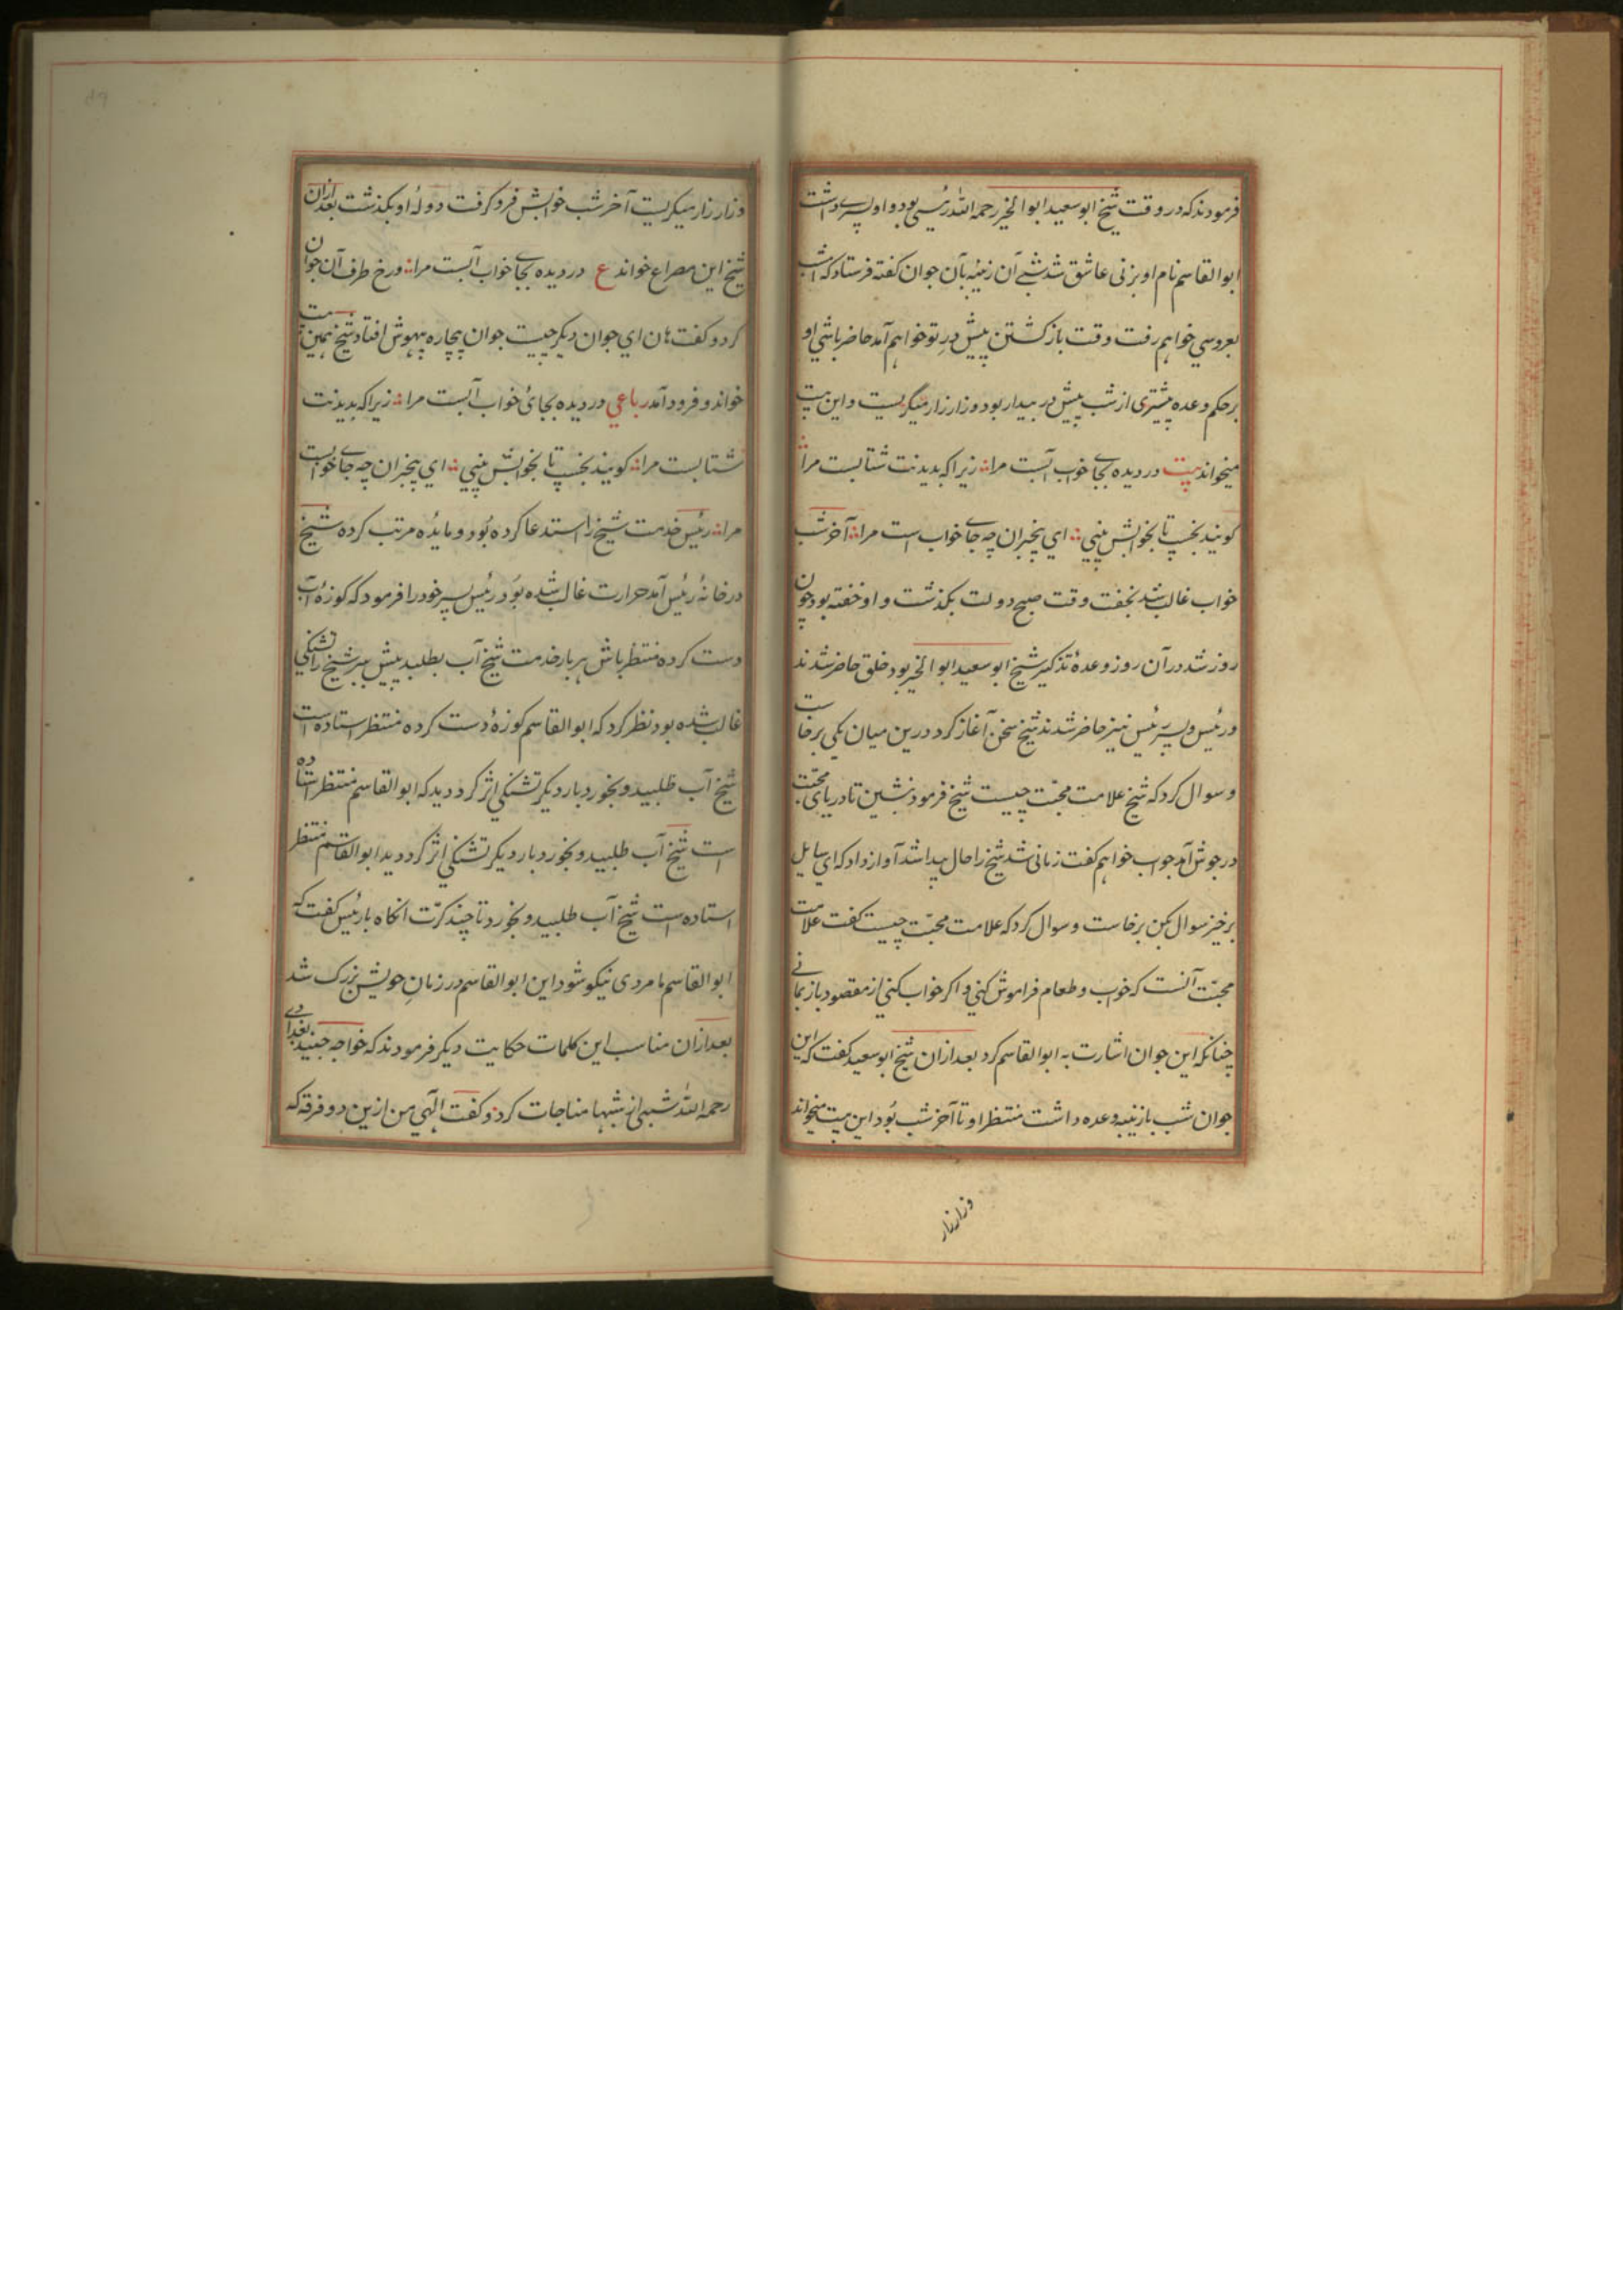 فرمودند که در وقت شیخ ابو سعید ابو الخیر رحمه الله رئیسی بود و او پسرے داشت
ابو القاسم نام او بزنی عاشق شد شبے آن زنینه بآن جوان گفته فرستاد که امشب
بعروسي خواهم رفت وقت باز گشتن پیش درِ تو خواهم آمد حاضر باشي او
بر حکم وعده پیشتری از شب پیش در بیدار بود و زار زار میگریست و این بیت
میخواند بیت در دیده بجاے خواب آبست مرا زیرا که بدیدنت شتابست مرا
گویند بخسپ تا بخوابش بیني اي بیخبران چه جاے خواب است مرا آخر شب
خواب غالب شد بخفت وقت صبح دولت بگذشت و او خفته بود چون
روز شد در آن روز وعدهٔ تذکیر شیخ ابو سعید ابو الخیر بود خلق حاضر شدند
و رئیس و پسر رئیس نیز حاضر شدند شیخ سخن آغاز کرد درین میان یکي برخاست
و سوال کرد که شیخ علامت محبّت چیست شیخ فرمود بنشین تا دریای محبّت
در جوش آید جواب خواهم گفت زمانی شد شیخ را حال پیدا شد آواز داد که ای سایل
برخیز سوال بکن برخاست و سوال کرد که علامت محبّت چیست گفت علامت
محبّت آنست که خواب و طعام فراموش کني و اگر خواب کني از مقصود باز مانے
چنانکه این جوان اشارت به ابو القاسم کرد بعد ازان شیخ ابو سعید گفت که این
جوان شب با زنینه وعده داشت منتظر او تا آخر شب بُود این بیت میخواند
وزار زار
و زار زار میگریست آخر شب خوابش فرو گرفت دولۀ او بگذشت بعد ازان
شیخ این مصراع خواند ع در دیده بجاے خواب آبست مرا و رخ طرف آن جوان
کرد و گفت هان اي جوان دیگر چیست جوان بیچاره بیهوش افتاد شیخ همین بیت
خواند و فرود آمد رباعي در دیده بجائ خواب آبست مرا زیرا که بدیدنت
شتابست مرا گویند بخسپ تا بخوابش بیني اي بیخبران چه جاے خوابست
مرا رئیس خدمت شیخ را استدعا کرده بُود و مایدُه مرتب کرده شیخ
در خانۀ رئیس آمد حرارت غالب شده بُود رئیس پسر خود را فرمود که کوزۀ آب
دست کرده منتظر باش هر بار خدمت شیخ آب بطلبد پیش ببر شیخ را تشنگي
غالب شده بود نظر کرد که ابو القاسم کوزهٔ دست کرده منتظر استاده است
شیخ آب طلبید و بخورد بار دیگر تشنگي اثر کرد دید که ابو القاسم منتظر استاده
است شیخ آب طلبید و بخورد بار دیگر تشنگي اثر کرد دید ابو القاسم منتظر
استاده است شیخ آب طلبید و بخورد تا چند کرّت انگاه با رئیس گفت که
ابو القاسم ما مردی نیکو شود این ابو القاسم در زمانِ خویش بزرگ شد
بعد ازان مناسب این کلمات حکایت دیگر فرمودند که خواجه جنید بغدادے
رحمه الله شبی از شبها مناجات کرد و گفت الٓهي من ازین دو فرقه که